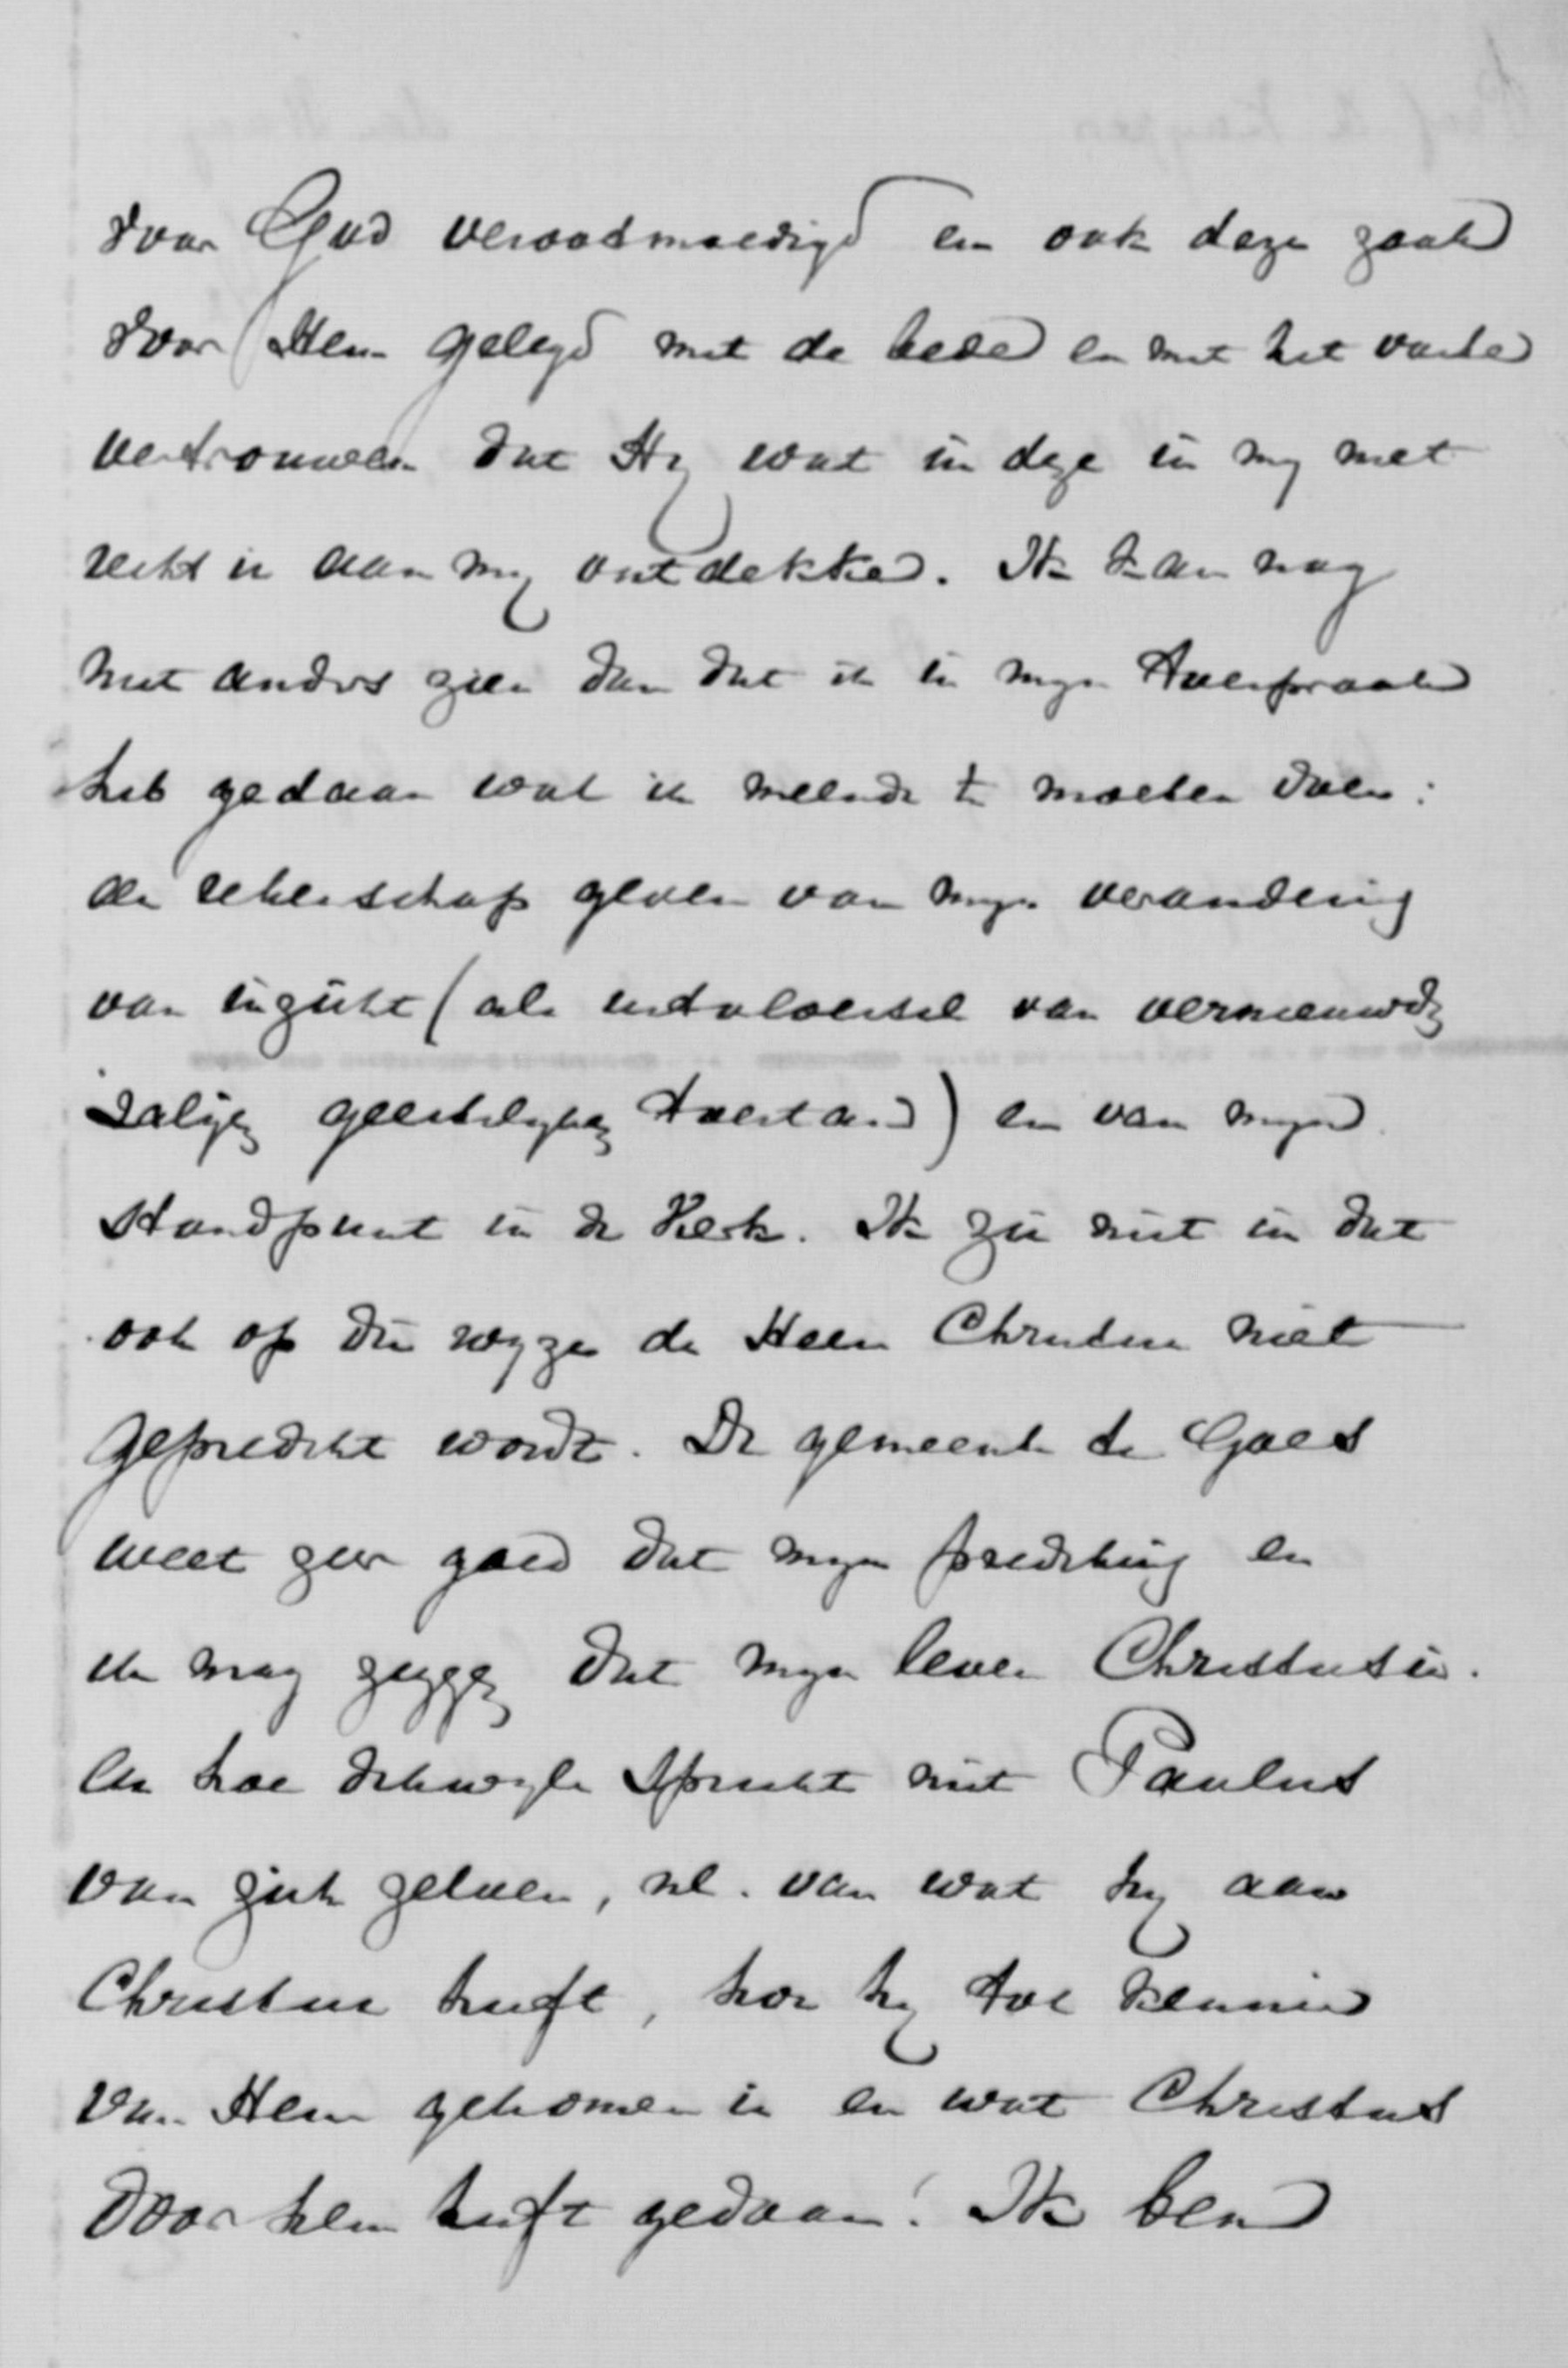 voor God verootmoedigd en ook deze zaak
voor Hem gelegd met de bede en met het vaste
vertrouwen dat Hij wat in deze in mij niet
recht is aan mij ontdekke. Ik kan nog
niet anders zien dan dat ik in mijn toespraak
heb gedaan wat ik meende te moeten doen:
de rekenschap geven van mijn verandering
van inzicht (als uitvloeisel van
zaligen geestelijken toestand) en van mijn
standpunt in de Kerk. Ik zie niet in dat
ook op die wijze de Heere Christus niet
gepredikt wordt. De gemeente te Goes
weet zeer goed dat mijn prediking en
ik mag zeggen dat mijn leven Christus is.
En hoe dikwijls spreekt niet Paulus
van zich zelven, nl. van wat hij aan
Christus heeft, hoe hij tot kennis
van Hem gekomen is en wat Christus
voor hem heeft gedaan! Ik ben